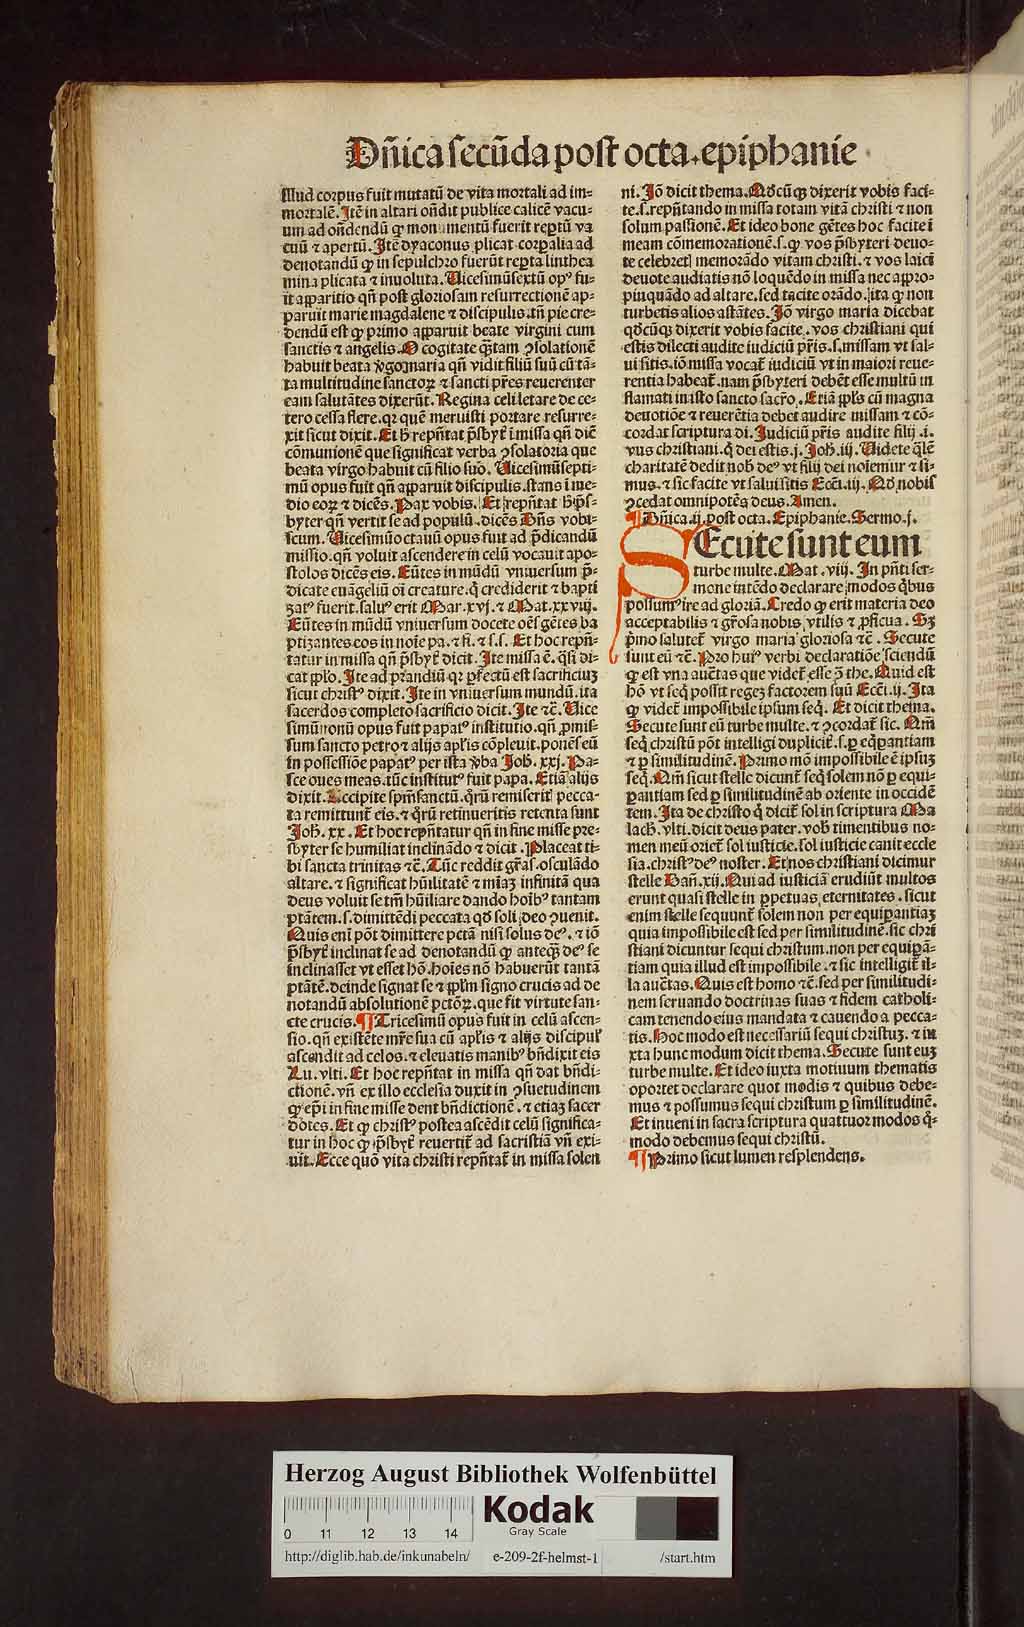 Dñica secūda post octa.epiphanie
Illud corpus fuit mutatū de vita mortali ad im⸗
mortalē. Itē in altari oñdit publice calicē vacu⸗
um ad oñdendū ꝙ monumentū fuerit reꝑtū va
cuū ⁊ apertū. Itē dyaconus plicat corꝑalia ad
denotandū ꝙ in sepulchro fuerūt reꝑta linthea
mina plicata ⁊ inuoluta. Uicesimūsextū opꝰ fu⸗
it apparitio qñ post gloriosam resurrectionē ap⸗
paruit marie magdalene ⁊ discipulis. tñ pie cre⸗
dendū est ꝙ primo apparuit beate virgini cum
sanctis ⁊ angelis. O cogitate q̄tam ꝯsolationē
habuit beata ꝟgo maria qñ vidit filiū suū cū tā⸗
ta multitudine sanctoꝝ ⁊ sancti p̄res reuerenter
eam salutātes dixerūt. Regina celi letare de ce⸗
tero cessa flere. qꝛ quē meruisti portare resurre⸗
xit sicut dixit. Et ħ rep̄ntat p̄sbyť ī missa qñ dič
cōmunionē que significat verba ꝯsolatoria que
beata virgo habuit cū filio suo. Uicesimūsepti⸗
mū opus fuit qñ apparuit discipulis. stans ī me⸗
dio eoꝝ ⁊ dicēs. Pax vobis. Et rep̄ntat ħ p̄s⸗
byter qñ vertit se ad populū. dicēs Dñs vobi⸗
scum. Uicesimūoctauū opus fuit ad p̄dicandū
missio. qñ voluit ascendere in celū vocauit apo⸗
stolos dicēs eis. Eūtes in mūdū vniuersum p̄⸗
dicate euāgeliū oī creature. q̇ crediderit ⁊ bapti
zatꝰ fuerit. saluꝰ erit Mar. xvj. ⁊ Mat. xxviij.
Eūtes in mūdū vniuersum docete oēs gētes ba
ptizantes eos in noīe pa. ⁊ fi. ⁊ s.s. Et hoc rep̄n⸗
tatur in missa qñ p̄sbyť dicit. Ite missa ē. q̄si di⸗
cat ꝓplo. Ite ad prandiū qꝛ ꝑfectū est sacrificiuꝫ
sicut christꝰ dixit. Ite in vniuersum mundū. ita
sacerdos completo sacrificio dicit. Ite ⁊c̄. Uice
simūnonū opus fuit papatꝰ institutio. qñ ꝓmis⸗
sum sancto petro ⁊ alijs apľis cōpleuit. ponēs eū
in possessiōe papatꝰ per ista ꝟba Joh. xxj. Pa⸗
sce oues meas. tūc institutꝰ fuit papa. Etiā alijs
dixit. Accipite sp̄msanctū. q̄rū remiseritꝭ pecca⸗
ta remittunť eis. ⁊ q̄rū retinueritis retenta sunt
Joh. xx. Et hoc rep̄ntatur qñ in fine misse pre⸗
sbyter se humiliat inclinādo ⁊ dicit. Placeat ti⸗
bi sancta trinitas ⁊c̄. Tūc reddit gr̄as. osculādo
altare. ⁊ significat hūilitatē ⁊ mīaꝫ infinitā qua
deus voluit se tm̄ hūiliare dando hoībꝰ tantam
ptātem. s. dimittēdi peccata qď soli deo ꝯuenit.
Quis enī pōt dimittere pctā nisi solus deꝰ. ⁊ iō
p̄sbyť inclinat se ad denotandū ꝙ anteqꝫ deꝰ se
inclinasset vt esset hō. hoīes nō habuerūt tantā
ptātē. deinde signat se ⁊ ꝓplm signo crucis ad de
notandū absolutionē pctōꝝ. que fit virtute san⸗
cte crucis. ¶Tricesimū opus fuit in celū ascen⸗
sio. qñ existēte mr̄e sua cū apľis ⁊ alijs discipuľ
ascendit ad celos. ⁊ eleuatis manibꝰ bñdixit eis
Lu. vlti. Et hoc rep̄ntat in missa qñ dat bñdi⸗
ctionē. vñ ex illo ecclesia duxit in ꝯsuetudinem
ꝙ ep̄i in fine misse dent bñdictionē. ⁊ etiaꝫ sacer
dotes. Et ꝙ christꝰ postea ascēdit celū significa⸗
tur in hoc ꝙ p̄sbyť reuertiť ad sacristiā vñ exi⸗
uit. Ecce quō vita christi rep̄ntať in missa solen
ni. Jō dicit thema. Qďcūqꝫ dixerit vobis faci⸗
te. s. rep̄ntando in missa totam vitā christi ⁊ non
solum passionē. Et ideo bone gētes hoc facite ī
meam cōmemorationē. s. ꝙ vos p̄sbyteri deuo⸗
te celebretꝭ memorādo vitam christi. ⁊ vos laici
deuote audiatis nō loquēdo in missa nec appro⸗
pinquādo ad altare. sed tacite orādo. ita ꝙ non
turbetis alios astātes. Jō virgo maria dicebat
qďcūqꝫ dixerit vobis facite. vos christiani qui
estis dilecti audite iudiciū p̄ris. s. missam vt sal⸗
ui sitis. iō missa vocať iudiciū vt in maiori reue⸗
rentia habeať. nam p̄sbyteri debēt esse multū in
flamati in isto sancto sacro. Etiā ꝓpls cū magna
deuotiōe ⁊ reuerētia debet audire missam ⁊ cō⸗
cordat scriptura di. Judiciū p̄ris audite filij .i.
vus christiani. q̇ dei estis. j. Joh. iij. Uidete q̄lē
charitatē dedit nob̄ deꝰ vt filij dei noīemur ⁊ si⸗
mus. ⁊ sic facite vt salui sitis Ecci. iij. Qď nobis
ꝯcedat omnipotēs deus. Amen.
¶Dñica. ij. post octa. Epiphanie. Sermo. j.
SEcute sunt eum
turbe multe. Mat. viij. In p̄nti ser⸗
mone intēdo declarare modos q̇bus
possumꝰ ire ad gloriā. Credo ꝙ erit materia deo
acceptabilis ⁊ gr̄osa nobis vtilis ⁊ ꝓficua. Sꝫ
p̄mo saluteť virgo maria gloriosa ⁊c̄. Secute
sunt eū ⁊c̄. Pro huiꝰ verbi declaratiōe sciendū
ꝙ est vna auc̄tas que videť esse ꝯ̄ the. Quid est
hō vt seq̇ possit regeꝫ factorem suū Ecci. ij. Ita
ꝙ videť impossibile ipsum seq̇. Et dicit thema.
Secute sunt eū turbe multe. ⁊ ꝯcordať sic. Nā
seq̇ christū pōt intelligi dupliciť. s. ꝑ eq̇ꝑantiam
⁊ ꝑ similitudinē. Primo mō impossibile ē ipsuꝫ
seq̇. Nā sicut stelle dicunť seq̇ solem nō ꝑ equi⸗
ꝑantiam sed ꝑ similitudinē ab oriente in occidē
tem. Ita de christo q̇ diciť sol in scriptura Ma
lach. vlti. dicit deus pater. vob̄ timentibus no⸗
men meū orieť sol iusticie. sol iusticie canit eccle
sia. christꝰ deꝰ noster. Et nos christiani dicimur
stelle Dañ. xij. Qui ad iusticiā erudiūt multos
erunt quasi stelle in ꝑpetuas eternitates. sicut
enim stelle sequunť solem non per equiꝑantiaꝫ
quia impossibile est sed per similitudinē. sic chri
stiani dicuntur sequi christum. non per equiꝑā⸗
tiam quia illud est impossibile. ⁊ sic intelligiť il⸗
la auc̄tas. Quis est homo ⁊c̄. sed per similitudi⸗
nem seruando doctrinas suas ⁊ fidem catholi⸗
cam tenendo eius mandata ⁊ cauendo a pecca⸗
tis. Hoc modo est necessariū sequi christuꝫ. ⁊ iu
xta hunc modum dicit thema. Secute sunt euꝫ
turbe multe. Et ideo iuxta motiuum thematis
oportet declarare quot modis ⁊ quibus debe⸗
mus ⁊ possumus sequi christum ꝑ similitudinē.
Et inueni in sacra scriptura quattuor modos q̇⸗
modo debemus sequi christū.
¶Primo sicut lumen resplendens.
Herzog August Bibliothek Wolfenbüttel
0 11 12 13 14
Kodak
Gray Scale
http://diglib.hab.de/inkunabeln/ e-209-2f-helmst-1 /start.htm